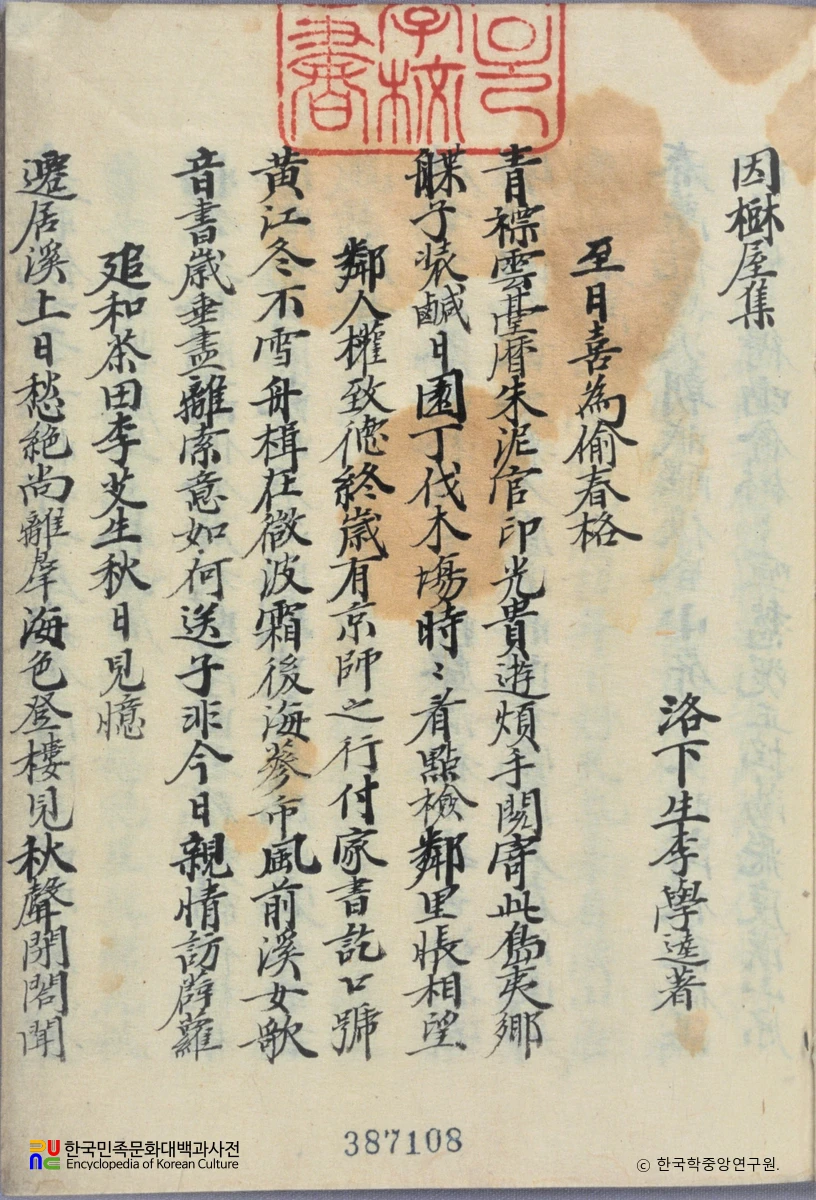 因樹屋集
洛下生李學逵著
至日喜為偷春格
青褾雲臺曆朱泥官印光貴遊煩手閱寄此島夷鄉
艓子裝鹹日園丁伐木場時〻看點檢鄰里悵相望
鄰人權致德終歲有京師之行付家書訖口號
黃江冬不雪舟楫在微波霜後海蔘市風前溪女歌
音書歲垂盡離索意如何送子非今日親情訪薜蘿
追和茶田李艾生秋日見憶
遷居溪上日愁絕尚離羣海色登樓見秋聲閉閤聞
387108
한국민족문화대백과사전
Encyclopedia of Korean Culture
© 한국학중앙연구원.